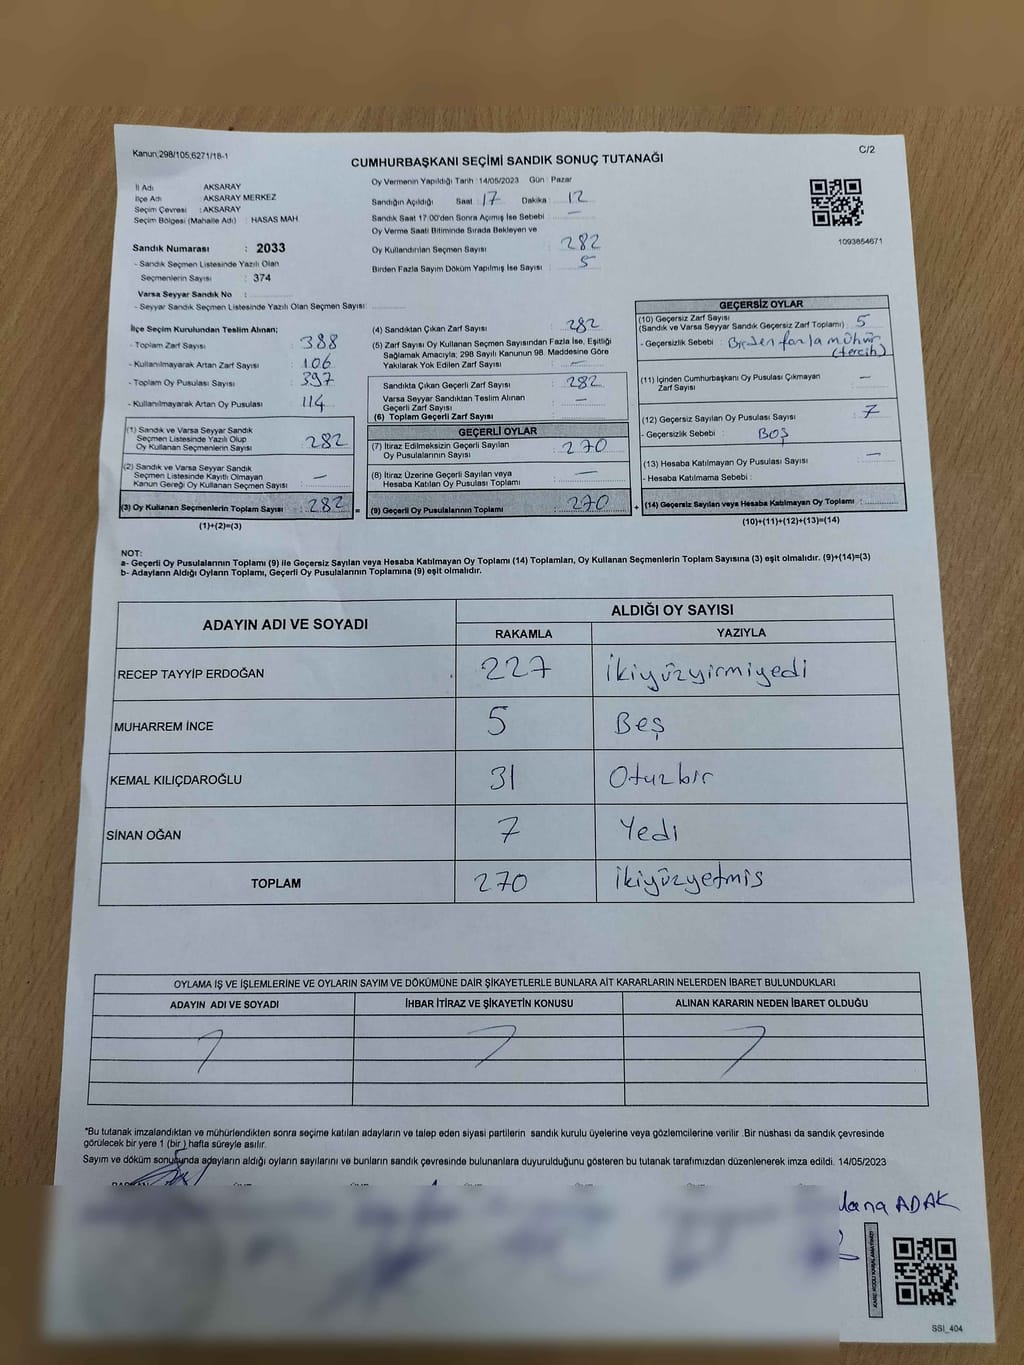 Kanun,298/105,6271/18-1
C/2
CUMHURBAŞKANI SEÇİMİ SANDIK SONUÇ TUTANAĞI
İl Adı : AKSARAY
İlçe Adı : AKSARAY MERKEZ
Seçim Çevresi : AKSARAY
Seçim Bölgesi (Mahalle Adı) : HASAS MAH
Sandık Numarası : 2033
- Sandık Seçmen Listesinde Yazılı Olan
Seçmenlerin Sayısı : 374
Varsa Seyyar Sandık No :
- Seyyar Sandık Seçmen Listesinde Yazılı Olan Seçmen Sayısı:
Oy Vermenin Yapıldığı Tarih :14/05/2023 Gün : Pazar
Sandığın Açıldığı Saat : 17 Dakika : 12
Sandık Saat 17:00'den Sonra Açımış İse Sebebi : —
Oy Verme Saati Bitiminde Sırada Bekleyen ve
Oy Kullandırılan Seçmen Sayısı : 282
Birden Fazla Sayım Döküm Yapılmış İse Sayısı : 5
1093854671
İlçe Seçim Kurulundan Teslim Alınan;
- Toplam Zarf Sayısı : 388
- Kullanılmayarak Artan Zarf Sayısı : 106
- Toplam Oy Pusulası Sayısı : 397
- Kullanılmayarak Artan Oy Pusulası : 114
(1) Sandık ve Varsa Seyyar Sandık
Seçmen Listesinde Yazılı Olup
Oy Kullanan Seçmenlerin Sayısı : 282
(2) Sandık ve Varsa Seyyar Sandık
Seçmen Listesinde Kayıtlı Olmayan
Kanun Gereği Oy Kullanan Seçmen Sayısı : —
(3) Oy Kullanan Seçmenlerin Toplam Sayısı : 282
(1)+(2)=(3)
(4) Sandıktan Çıkan Zarf Sayısı : 282
(5) Zarf Sayısı Oy Kullanan Seçmen Sayısından Fazla İse, Eşitliği
Sağlamak Amacıyla; 298 Sayılı Kanunun 98. Maddesine Göre
Yakılarak Yok Edilen Zarf Sayısı : —
Sandıkta Çıkan Geçerli Zarf Sayısı : 282
Varsa Seyyar Sandıktan Teslim Alınan
Geçerli Zarf Sayısı : —
(6) Toplam Geçerli Zarf Sayısı :
GEÇERLİ OYLAR
(7) İtiraz Edilmeksizin Geçerli Sayılan
Oy Pusulalarının Sayısı : 270
(8) İtiraz Üzerine Geçerli Sayılan veya
Hesaba Katılan Oy Pusulası Toplamı : —
= (9) Geçerli Oy Pusulalarının Toplamı : 270
GEÇERSİZ OYLAR
(10) Geçersiz Zarf Sayısı
(Sandık ve Varsa Seyyar Sandık Geçersiz Zarf Toplamı) : 5
- Geçersizlik Sebebi : Birden fazla mühür
(tercih)
(11) İçinden Cumhurbaşkanı Oy Pusulası Çıkmayan
Zarf Sayısı : —
(12) Geçersiz Sayılan Oy Pusulası Sayısı : 7
- Geçersizlik Sebebi : BOŞ
(13) Hesaba Katılmayan Oy Pusulası Sayısı : —
- Hesaba Katılmama Sebebi :
+ (14) Geçersiz Sayılan veya Hesaba Katılmayan Oy Toplamı :
(10)+(11)+(12)+(13)=(14)
NOT:
a- Geçerli Oy Pusulalarının Toplamı (9) ile Geçersiz Sayılan veya Hesaba Katılmayan Oy Toplamı (14) Toplamları, Oy Kullanan Seçmenlerin Toplam Sayısına (3) eşit olmalıdır. (9)+(14)=(3)
b- Adayların Aldığı Oyların Toplamı, Geçerli Oy Pusulalarının Toplamına (9) eşit olmalıdır.
ADAYIN ADI VE SOYADI
ALDIĞI OY SAYISI
RAKAMLA YAZIYLA
RECEP TAYYİP ERDOĞAN 227 İkiyüzyirmiyedi
MUHARREM İNCE 5 Beş
KEMAL KILIÇDAROĞLU 31 Otuzbir
SİNAN OĞAN 7 Yedi
TOPLAM 270 İkiyüzyetmiş
OYLAMA İŞ VE İŞLEMLERİNE VE OYLARIN SAYIM VE DÖKÜMÜNE DAİR ŞİKAYETLERLE BUNLARA AİT KARARLARIN NELERDEN İBARET BULUNDUKLARI
ADAYIN ADI VE SOYADI İHBAR İTİRAZ VE ŞİKAYETİN KONUSU ALINAN KARARIN NEDEN İBARET OLDUĞU
*Bu tutanak imzalandıktan ve mühürlendikten sonra seçime katılan adayların ve talep eden siyasi partilerin sandık kurulu üyelerine veya gözlemcilerine verilir .Bir nüshası da sandık çevresinde
görülecek bir yere 1 (bir ) hafta süreyle asılır.
Sayım ve döküm sonuşunda adayların aldığı oyların sayılarını ve bunların sandık çevresinde bulunanlara duyurulduğunu gösteren bu tutanak tarafımızdan düzenlenerek imza edildi. 14/05/2023
ADAK
KARE KODU KARALAMAYINIZ!
SSI_404